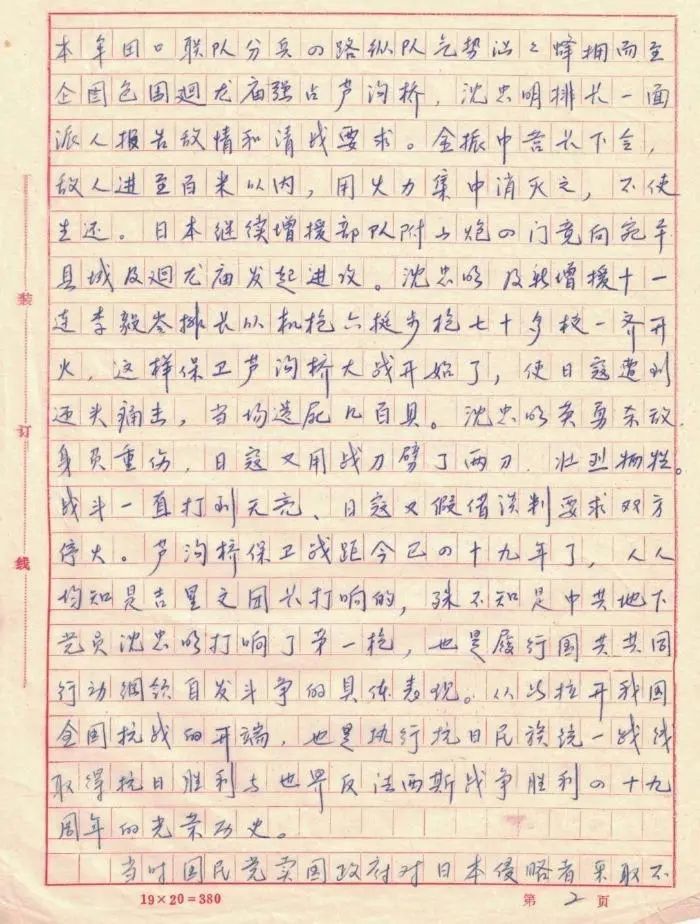 本牟田口联队分兵四路纵队气势汹々蜂拥而至
企图包围廻龙庙强占芦沟桥，沈忠明排长一面
派人报告敌情和请战要求。金振中营长下令，
敌人进至百米以内，用火力集中消灭之，不使
生还。日本继续增援部队附山炮四门竟向宛平
县城及廻龙庙发起进攻。沈忠明及新增援十一
连李毅岑排长以机枪六挺步枪七十多枝一齐开
火，这样保卫芦沟桥大战开始了，使日寇遭到
迎头痛击，当场造死几百具。沈忠明英勇杀敌，
身负重伤，日寇又用战刀劈了两刀，壮烈牺牲。
战斗一直打到天亮、日寇又假借谈判要求双方
停火。芦沟桥保卫战距今已四十九年了，人人
均知是吉星文团长打响的，殊不知是中共地下
党员沈忠明打响了第一枪，也是履行国共共同
行动纲领自发斗争的具体表现。从此拉开我国
全国抗战的开端，也是执行抗日民族统一战线
取得抗日胜利与世界反法西斯战争胜利四十九
周年的光荣历史。
当时国民党卖国政府对日本侵略者采取不
装
订
线
19×20=380
第 2 页